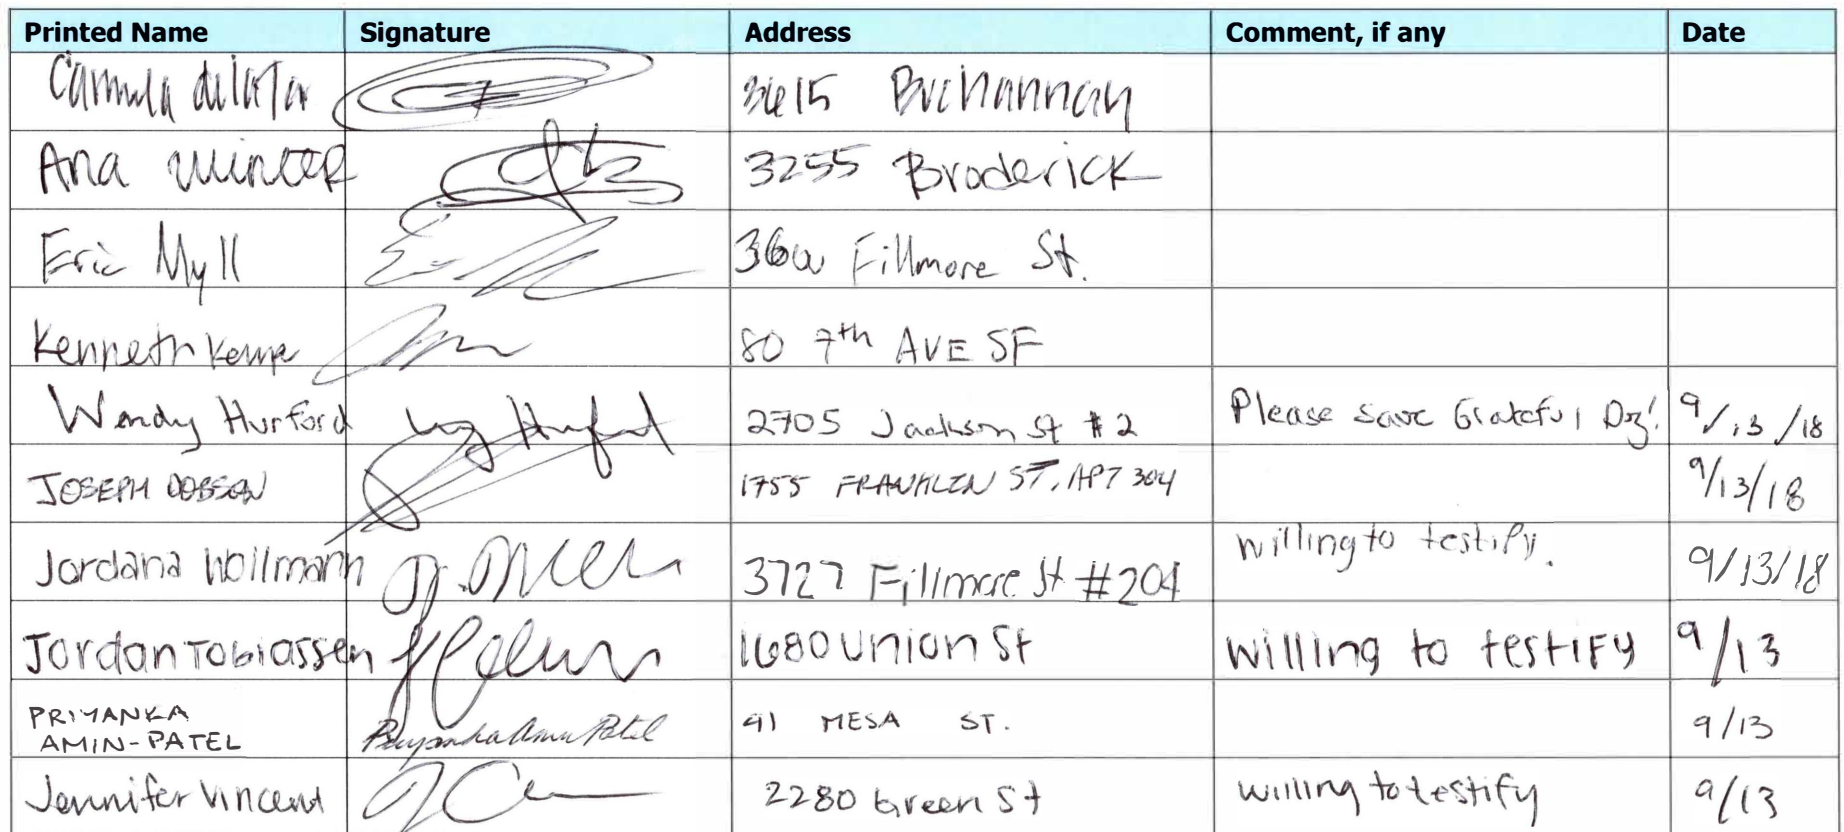 Printed Name Signature Address Comment, if any Date
3615 Buchannan
Ana Winter 3255 Broderick
Eric Myll 3600 Fillmore St.
Kenneth Kemp 80 7th AVE SF
Wendy Hurford 2705 Jackson St #2 Please save Grateful Dog! 9/13/18
JOSEPH DOBSON 1755 FRANKLIN ST, APT 304 9/13/18
Jordana Wollmann 3727 Fillmore St #204 willing to testify. 9/13/18
Jordan Tobiassen 1680 Union St willing to testify 9/13
PRIYANKA
AMIN-PATEL Priyanka Amin Patel 91 MESA ST. 9/13
Jennifer Vincent 2280 Green St willing to testify 9/13